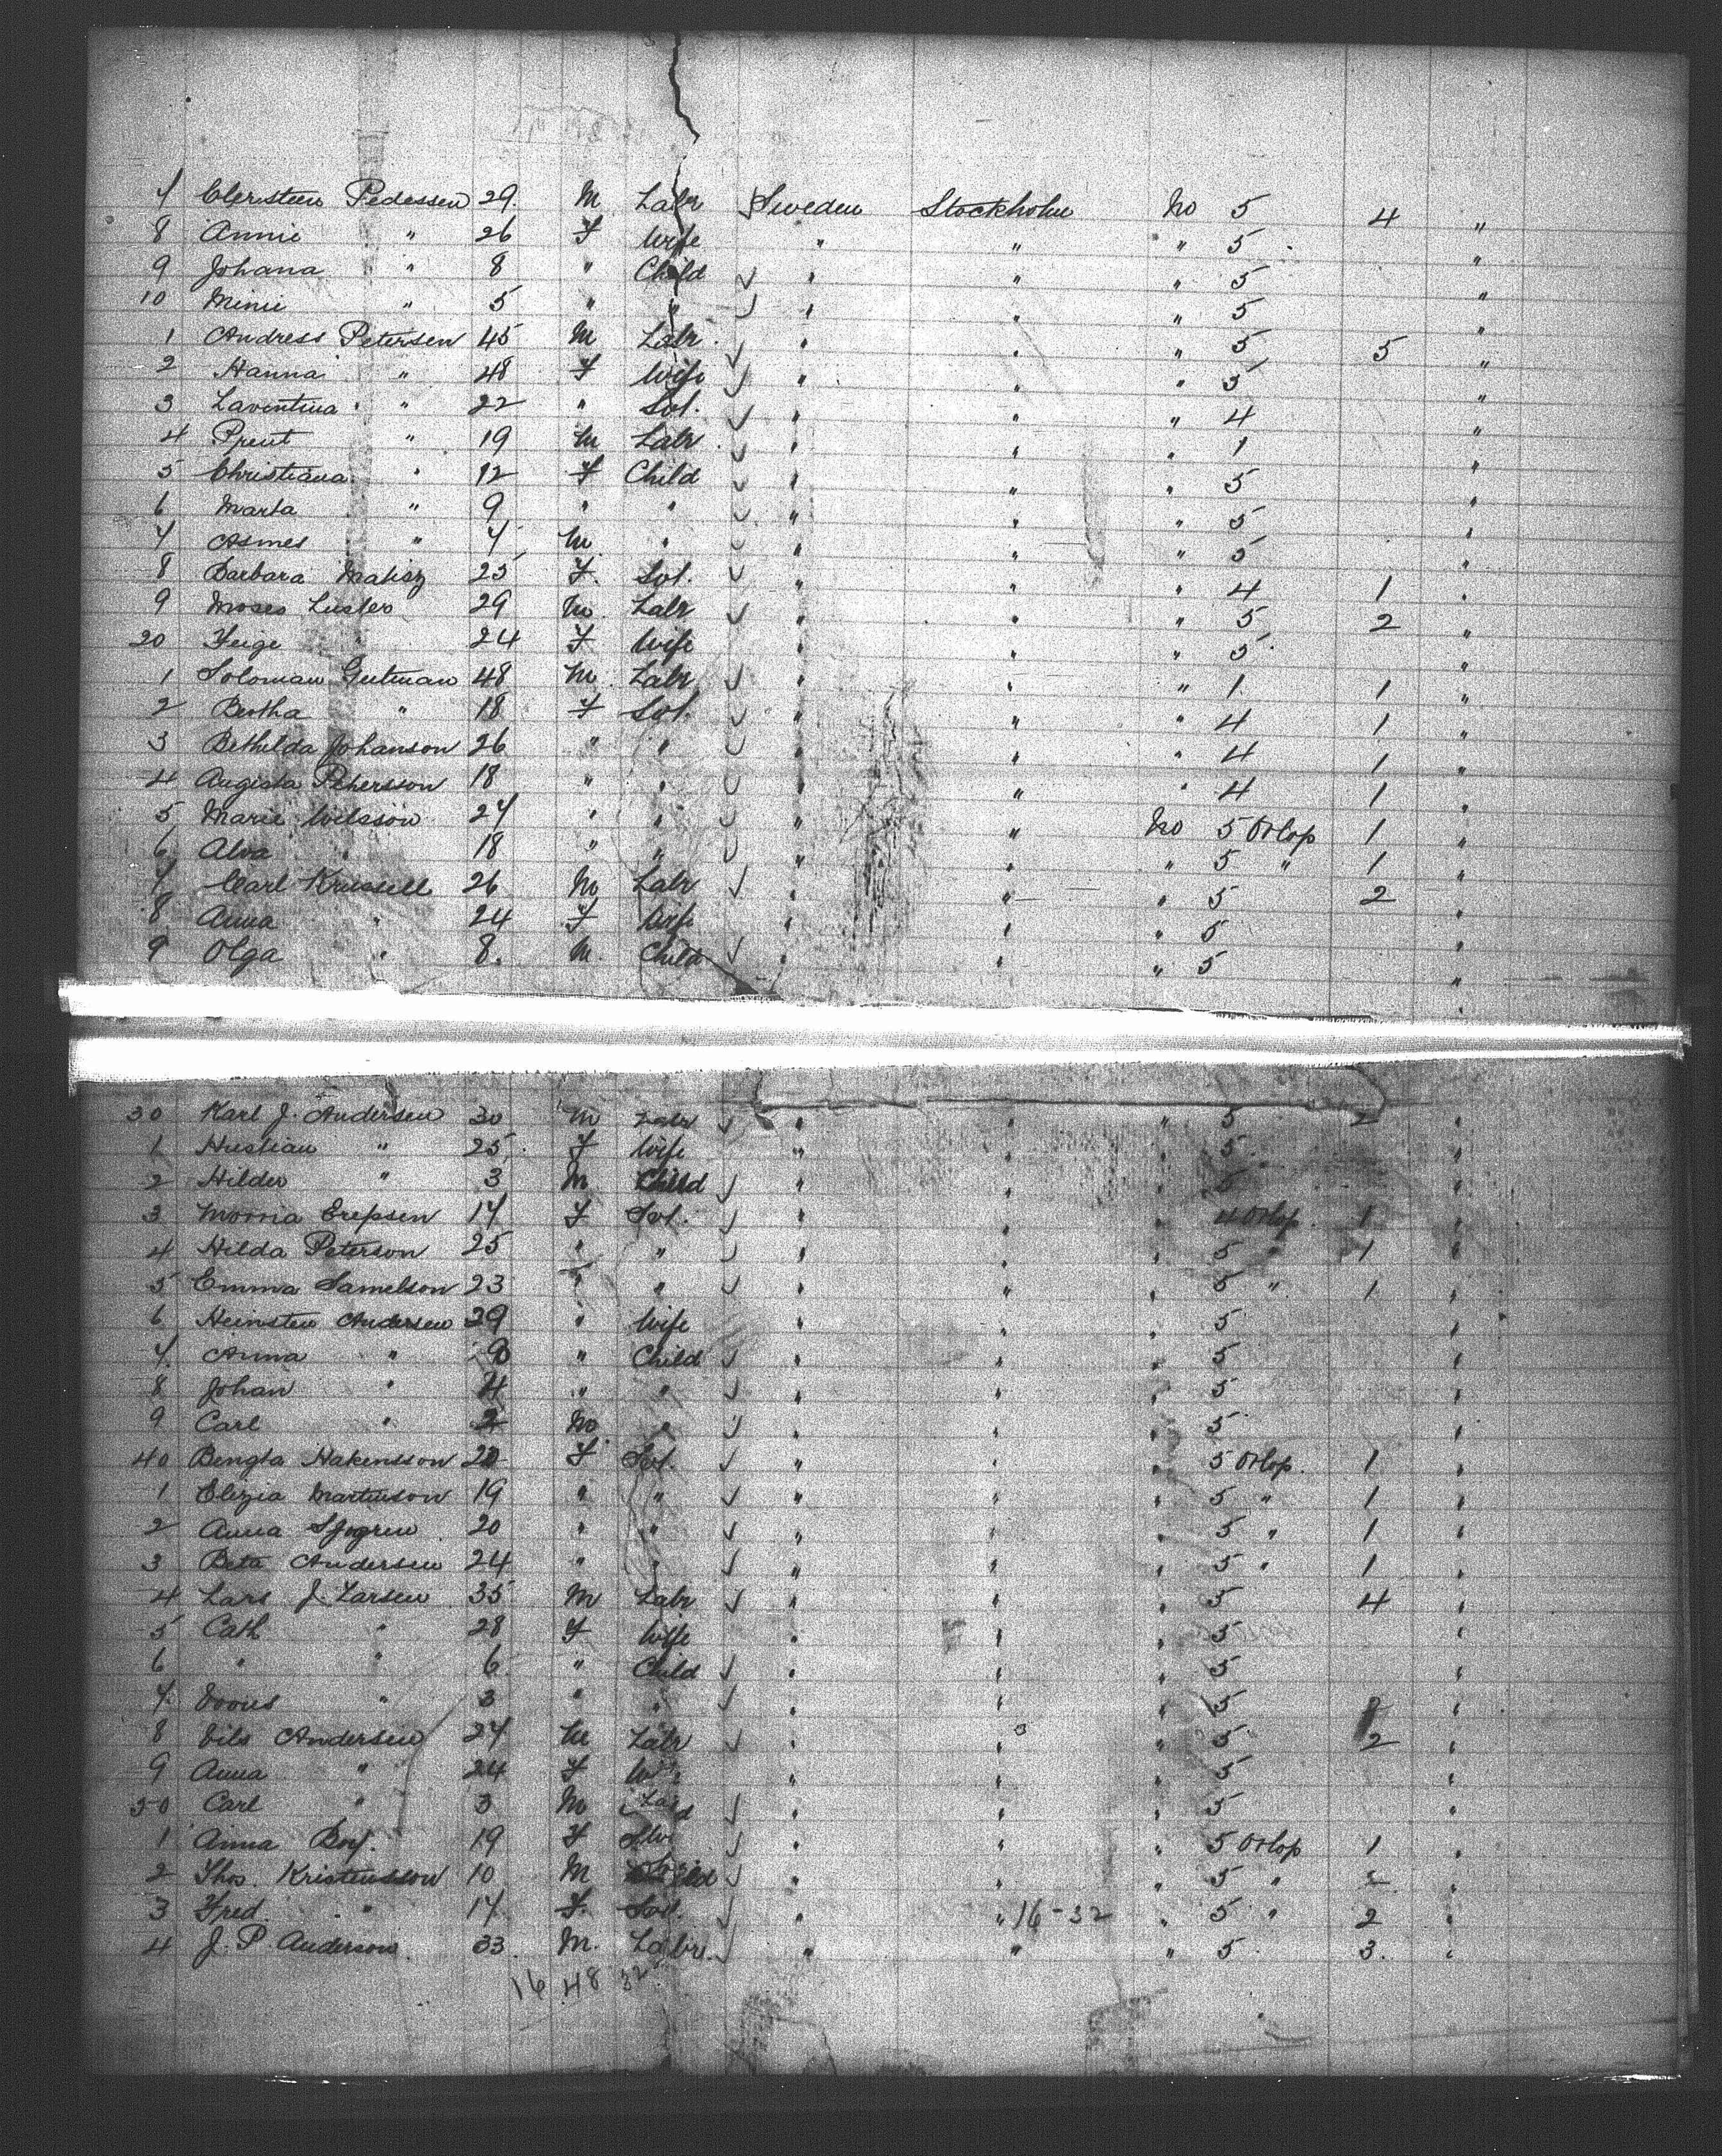 7 Chersteen Pedessen 29. M Labr Sweden Stockholm No 5 4 "
8 Annie " 26 F Wife " " " 5 "
9 Johana " 8 " Child " " " 5 "
10 Minie " 5 " " " " " 5 "
1 Andress Petersen 45 M Labr. " " " 5 5 "
2 Hanna " 48 F Wife " " " 5 "
3 Laventina " 22 " Sol. " " " 4 "
4 Prent " 19 M Labr. " " " 1 "
5 Christiana " 12 F Child " " " 5 "
6 Marta " 9 " " " " " 5 "
7 Asmes " 7 M " " " " 5 "
8 Barbara Matisz 25 F. Sol. " " " 4 1 "
9 Moses Luster 29 M Labr " " " 5 2 "
20 Feige " 24 F Wife " " " 5 "
1 Soloman Gutman 48 M Labr " " " 1 1 "
2 Bertha " 18 F Sol. " " " 4 1 "
3 Bethilda Johanson 26 " " " " " 4 1 "
4 Augista Petersson 18 " " " " " 4 1 "
5 Marie Wilsson 27 " " " " No 5 Orlop 1 "
6 Alva " 18 " " " " " 5 " 1 "
7 Carl Krussell 26 M Labr " " " 5 2 "
8 Anna " 24 F Wife " " " 5 "
9 Olga " 8. M. Child " " " 5 "
30 Karl J. Andersen 30 M Labr " " " 5 2 "
1 Hustian " 25 F Wife " " 5 "
2 Hilder " 3 M Child " " " 5 "
3 Morria Erepsen 17 F Sol. " " " 4 Orlop 1 "
4 Hilda Peterson 25 " " " " " 5 " 1 "
5 Emma Samelson 23 " " " " " 5 " 1 "
6 Heinsten Andersen 29 " Wife " " " 5 "
7 Anna " 9 " Child " " " 5 "
8 Johan " 4 " " " " " 5 "
9 Carl " 2 M " " " " 5 "
40 Bengta Hakensson 20 F Sol. " " " 5 Orlop 1 "
1 Elizia Martinson 19 " " " " " 5 " 1 "
2 Anna Sjogren 20 " " " " " 5 " 1 "
3 Beta Andersen 24 " " " " " 5 " 1 "
4 Lars J. Larsen 35 M Labr " " " 5 4 "
5 Cath " 28 F Wife " " " 5 "
6 " " 6 " Child " " " 5 "
7 " 3 " " " " " 5 "
8 Vils Andersen 27 M Labr " " " 5 2 "
9 Anna " 24 F " " " 5 "
50 Carl " 3 M " " " 5 "
1 Anna 19 F " " " 5 Orlop 1 "
2 Thos. Kristensson 10 M " " " 5 " 2 "
3 Fred " 17 F. Sol. " " 16-32 " 5 " 2 "
4 J. P. Anderson 33 M. Labr. " " " 5 3. "
16 48 32